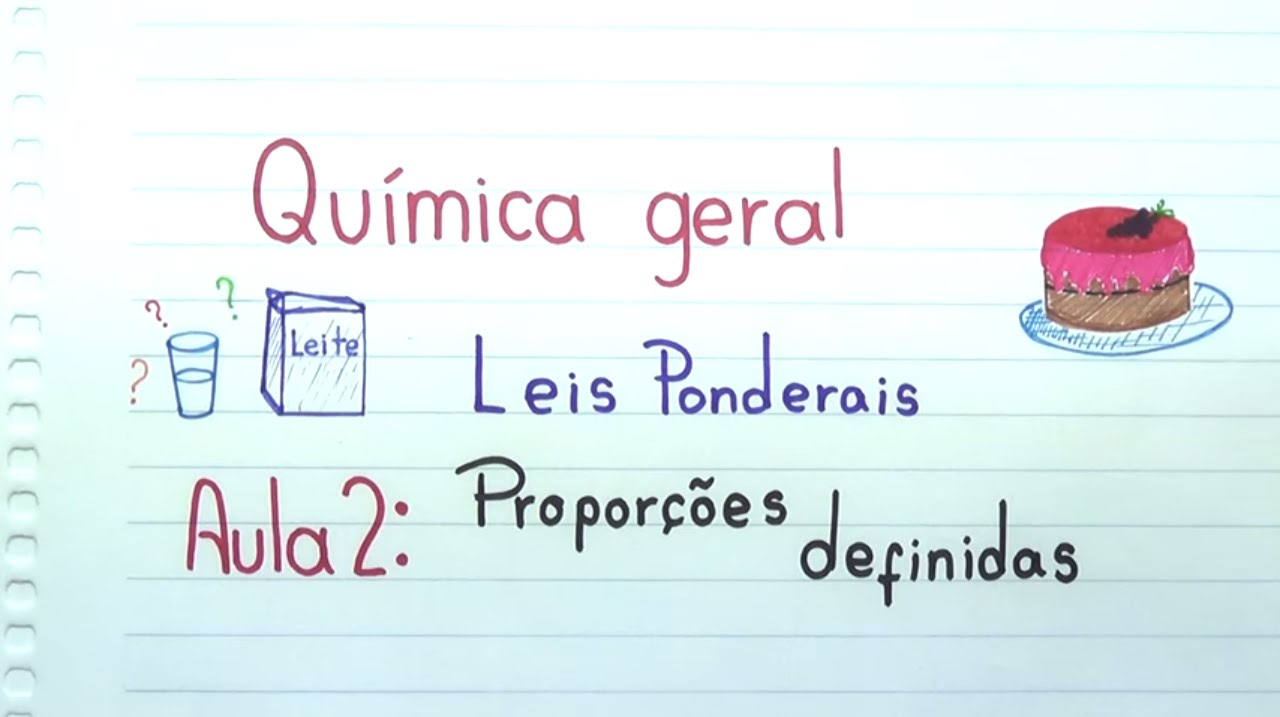 Química geral
? ?
?
Leite
Leis Ponderais
Aula 2: Proporções
definidas